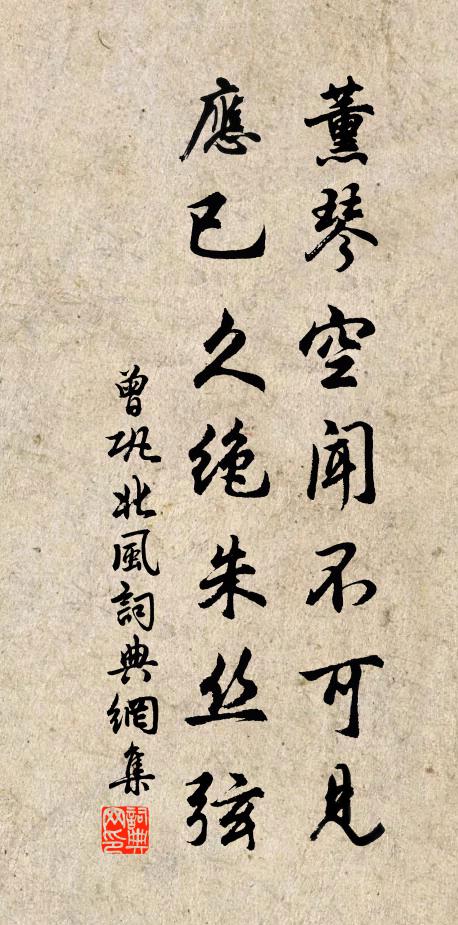 薰琴空聞不可見
應已久絶朱丝弦
曾巩北風詞典網集
詞典网印